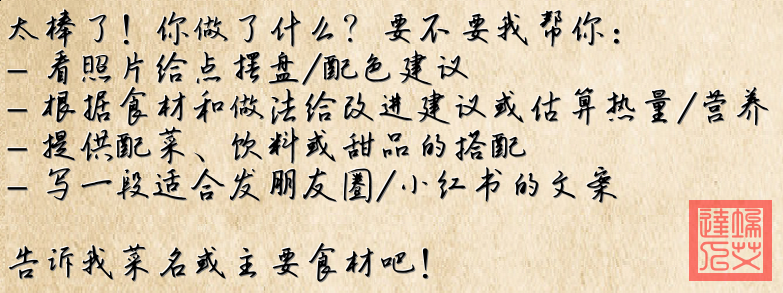 太棒了！你做了什么？要不要我帮你：
- 看照片给点摆盘/配色建议
- 根据食材和做法给改进建议或估算热量/营养
- 提供配菜、饮料或甜品的搭配
- 写一段适合发朋友圈/小红书的文案
告诉我菜名或主要食材吧！